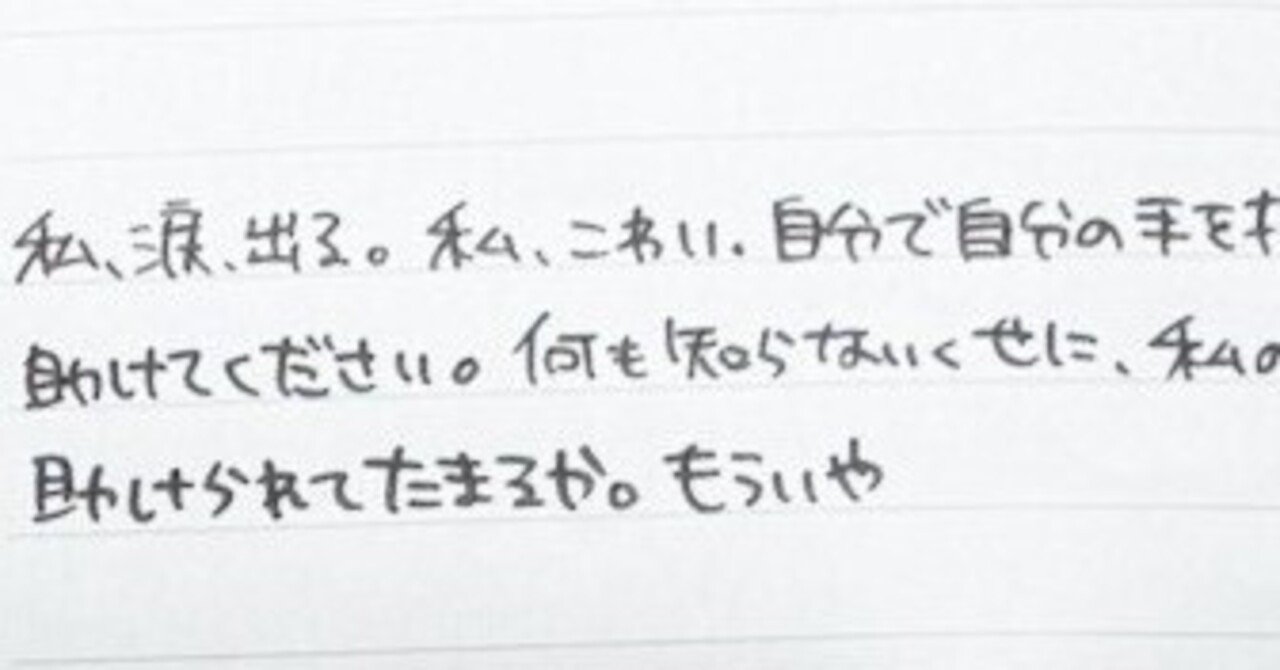 私、涙、出る。私、こわい。自分で自分の手を
助けてください。何も知らないくせに、私の
助けられてたまるか。もういや